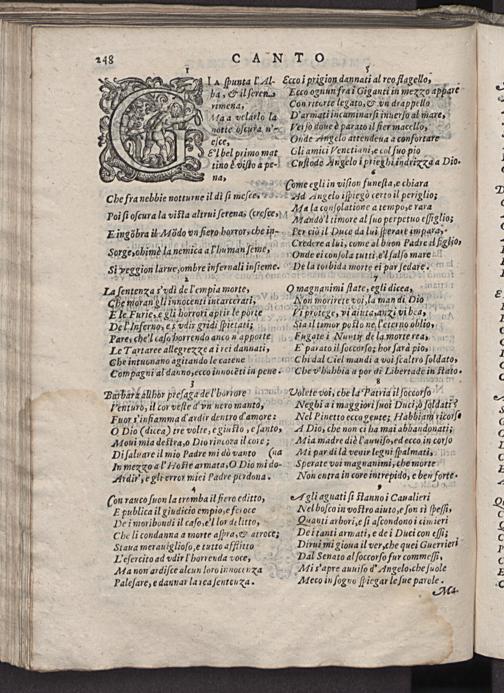 248 CANTO
1
GIA spunta l'Al-
ba, & il seren
rimena,
Ma a velarlo la
notte oscura n'-
esce,
E'l bel primo mat
tino è visto a pe-
na,
Che fra nebbie notturne il dì si mesce,
Poi si oscura la vista altrui serena, cresce,
E ingõbra il Mõdo vn fiero horror, che ip-
Sorge, ohimè la nemica a l'human seme,
Si veggion larue, ombre infernali insieme.
2
La sentenza s'vdì de l'empia morte,
Che moran gli innocenti incarcerati,
E le Furie, e gli horrori aprir le porte
De l'Inferno, e s'vdir gridi spietati;
Pare, che'l caso horrendo anco n'apporte
Le Tartaree allegrezze a i rei dannati,
Che intuonano agitando le catene
Compagni al danno, ecco innocẽti in pene.
3
Barbara allhor presaga de l'horrore
Venturo, il cor veste d'vn nero manto,
Fuor s'infiamma d'ardir dentro d'amore:
O Dio (dicea) tre volte, e giusto, e santo,
Moui mia destra, o Dio rincora il core;
Di saluare il mio Padre mi dò vanto (na
In mezzo a l'Hoste armata, O Dio mi do-
Ardir', e gli error miei Padre perdona.
4
Con rauco suon la tromba il fiero editto,
E publica il giudicio empio, e feroce
De i moribondi il caso, e'l lor delitto,
Che li condanna a morte aspra, & atroce;
Staua merauiglioso, e tutto afflitto
L'esercito ad vdir l'horrenda voce,
Ma non ardisce alcun loro innocenza
Palesare, e dannar la rea sentenza.
5
Ecco i prigion dannati al reo flagello,
Ecco ognun fra i Giganti in mezzo appare
Con ritorte legato, & vn drappello
D'armati incaminarsi inuerso al mare,
Verso doue è parato il fier macello,
Onde Angelo attendeua a confortare
Gli amici Venetiani, e col suo pio
Custode Angelo i prieghi indrizza a Dio.
6
Come egli in vision funesta, e chiara
Ad Angelo ispiegò certo il periglio;
Ma la consolatione a tempo, e rara
Mandò l'timore al suo perpetuo essiglio;
Per ciò il Duce da lui sperare impara,
Credere a lui, come al buon Padre il figlio,
Onde ei consola tutti, e'l falso mare
De la torbida morte ei par sedare.
7
O magnanimi state, egli dicea,
Non morirete voi, la man di Dio
Vi protege, vi aiuta, anzi vi bea,
Sia il timor posto ne l'eterno oblio,
Fugate i Nuntij de la morte rea,
E' parato il soccorso; hor sarà pio,
Chi dal Ciel mandi a voi scaltro soldato,
Che v'hubbia a por di Libertade in stato.
8
Volete voi, che la Patria il soccorso
Neghi a i maggiori suoi Duci, ò soldati?
Nel Pinetto ecco gente; Habbiam ricorso
A Dio, che non ci ha mai abbandonati;
Mia madre diè l'auuiso, ed ecco in corso
Mi par di là venir legni spalmati,
Sperate voi magnanimi, che morte
Non entra in core intrepido, e ben forte.
9
Agli aguati si stanno i Caualieri
Nel bosco in vostro aiuto, e son ri spessi,
Quanti arbori, e si ascondono i cimieri
De i tanti armati, e de i Duci con essi;
Dirui mi gioua il ver, che quei Guerrieri
Dal Senato al soccorso fur commessi,
Mi s'apre auuiso d'Angelo, che suole
Meco in sogno spiegar le sue parole.
Ma